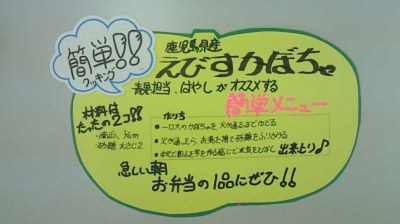 簡単!!
クッキング
鹿児島県産
えびすかぼちゃ
青果担当、はやしがオススメする
簡単メニュー
材料は
たったの2コ!!
・南瓜 1/4
・砂糖 大さじ2
作り方
・一口大のかぼちゃを火が通るまでゆでる
・火が通ったら、お湯を捨て砂糖をふりかける
出来上り♪
忙しい朝
お弁当の1品にぜひ!!